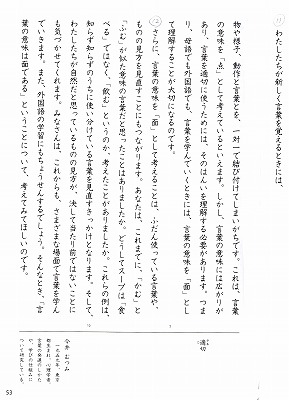 11
わたしたちが新しく言葉を覚えるときには、
物や様子、動作と言葉とを、一対一で結び付けてしまいがちです。これは、言葉
の意味を「点」として考えているといえます。しかし、言葉の意味には広がりが
あり、言葉を適切に使うためには、そのはんいを理解する必要があります。つま
り、母語でも外国語でも、言葉を学んでいくときには、言葉の意味を「面」とし
て理解することが大切になるのです。
12
さらに、言葉の意味を「面」として考えることは、ふだん使っている言葉や、
ものの見方を見直すことにもつながります。あなたは、これまでに、「かむ」と
「ふむ」が似た意味の言葉だと思ったことはありましたか。どうしてスープは「食
べる」ではなく、「飲む」というのか、考えたことがありましたか。これらの例は、
知らず知らずのうちに使い分けている言葉を見直すきっかけとなります。そして、
わたしたちが自然だと思っているものの見方が、決して当たり前ではないことに
も気づかせてくれます。みなさんは、これからも、さまざまな場面で言葉を学ん
でいきます。また、外国語の学習にもちょうせんするでしょう。そんなとき、「言
葉の意味は面である」ということについて、考えてみてほしいのです。
適切
今井 むつみ
53